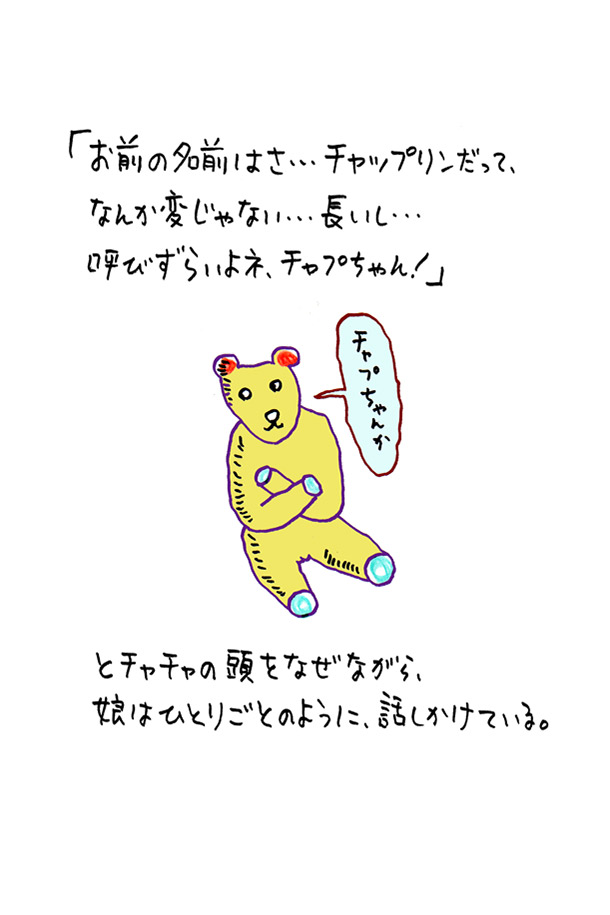 「お前の名前はさ…チャップリンだって、
なんか変じゃない…長いし…
呼びずらいよネ、チャプちゃん!」
チャプちゃんか
とチャチャの頭をなぜながら、
娘はひとりごとのように、話しかけている。